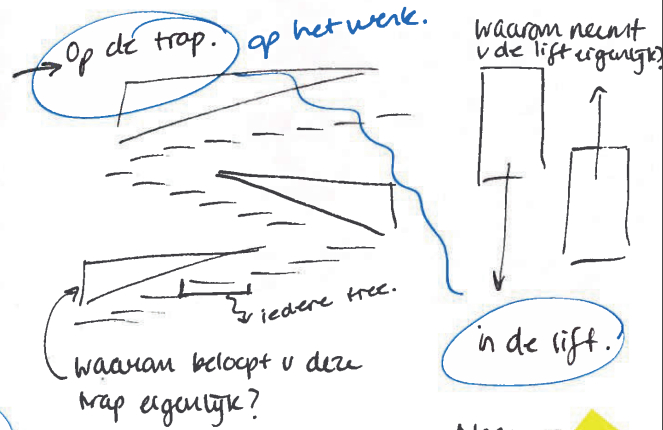 Op de trap.
op het werk.
waarom neemt
u de lift eigenlijk?
iedere tree.
in de lift.
waarom beloopt u deze
trap eigenlijk?